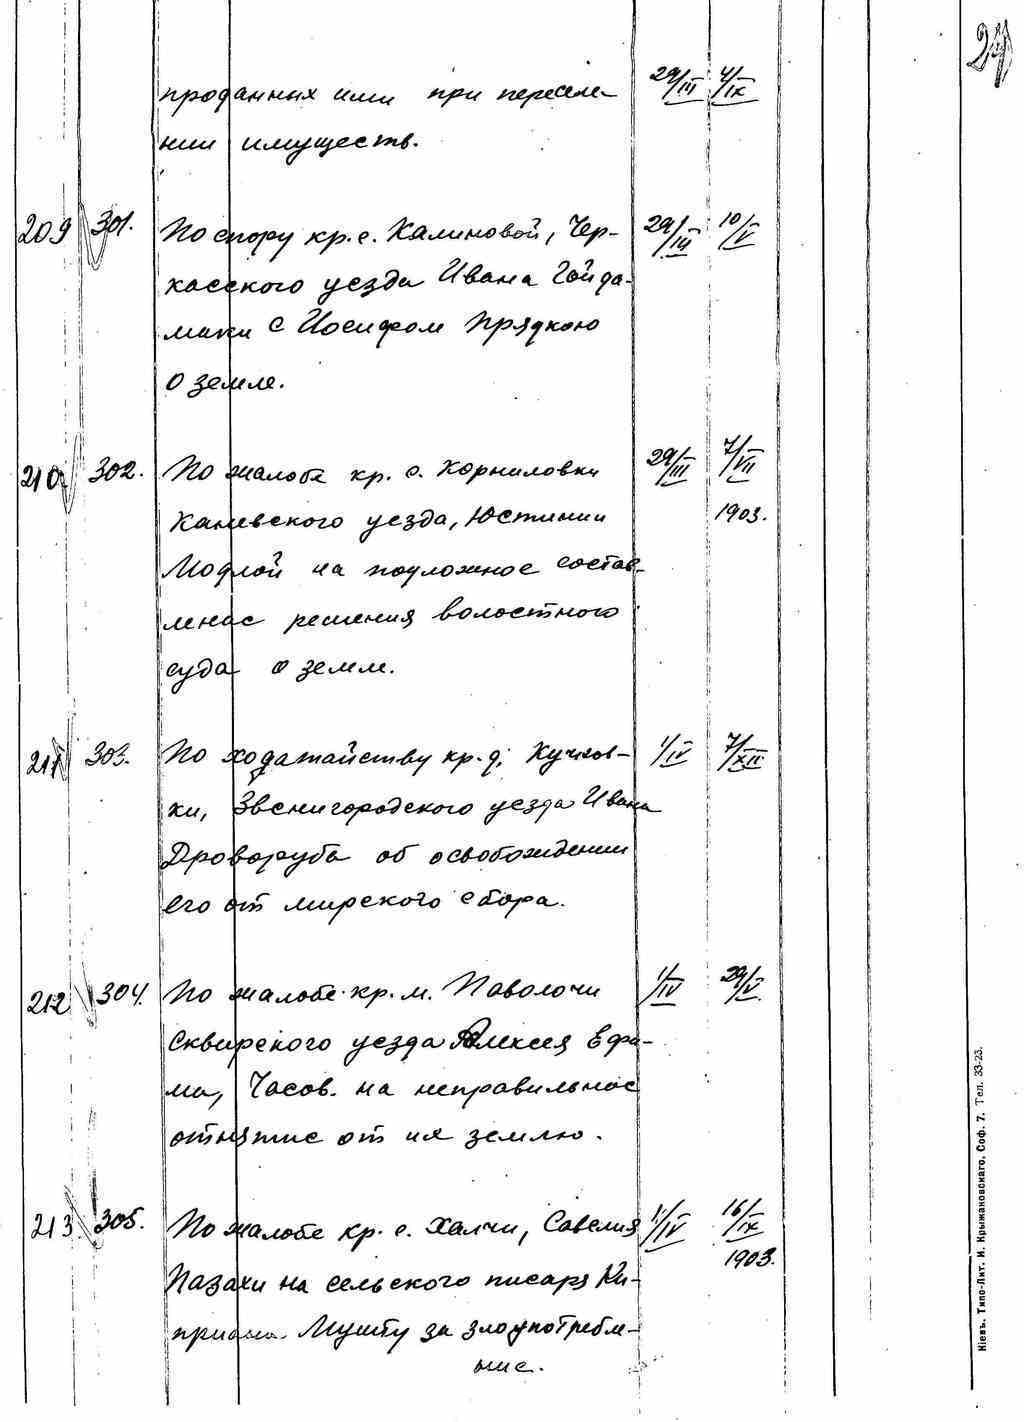 29/III 4/IX 27
проданных ими при переселе-
нии имуществ.
209 301. По спору кр. с. Калиновой, Чер- 29/III 10/V
касского уезда Ивана Гайда-
маки с Иосифом Прядкою
о земле.
210 302. По жалобе кр. с. Корниловки 29/III 7/VII
Каневского уезда, Юстинии 1903.
Модлой на подложное состав-
ление решения волостного
суда о земле.
211 303. По ходатайству кр. д. Кучков- 1/IV 7/XII
ки, Звенигородского уезда Ивана
Дроворуба об освобождении
его от мирского сбора.
212 304. По жалобе кр. м. Паволочи 1/IV 29/V.
Сквирского уезда Алексея Ефи-
ма, Часов. на неправильное
отнятие от ия землю.
213 305. По жалобе кр. с. Халчи, Савелия 1/IV 16/IX
Пазахи на сельского писаря Ки- 1903.
приана Мушту за злоупотребле-
ние.
Кіевъ. Типо-Лит. И. Крыжановскаго, Соф. 7. Тел. 33-23.